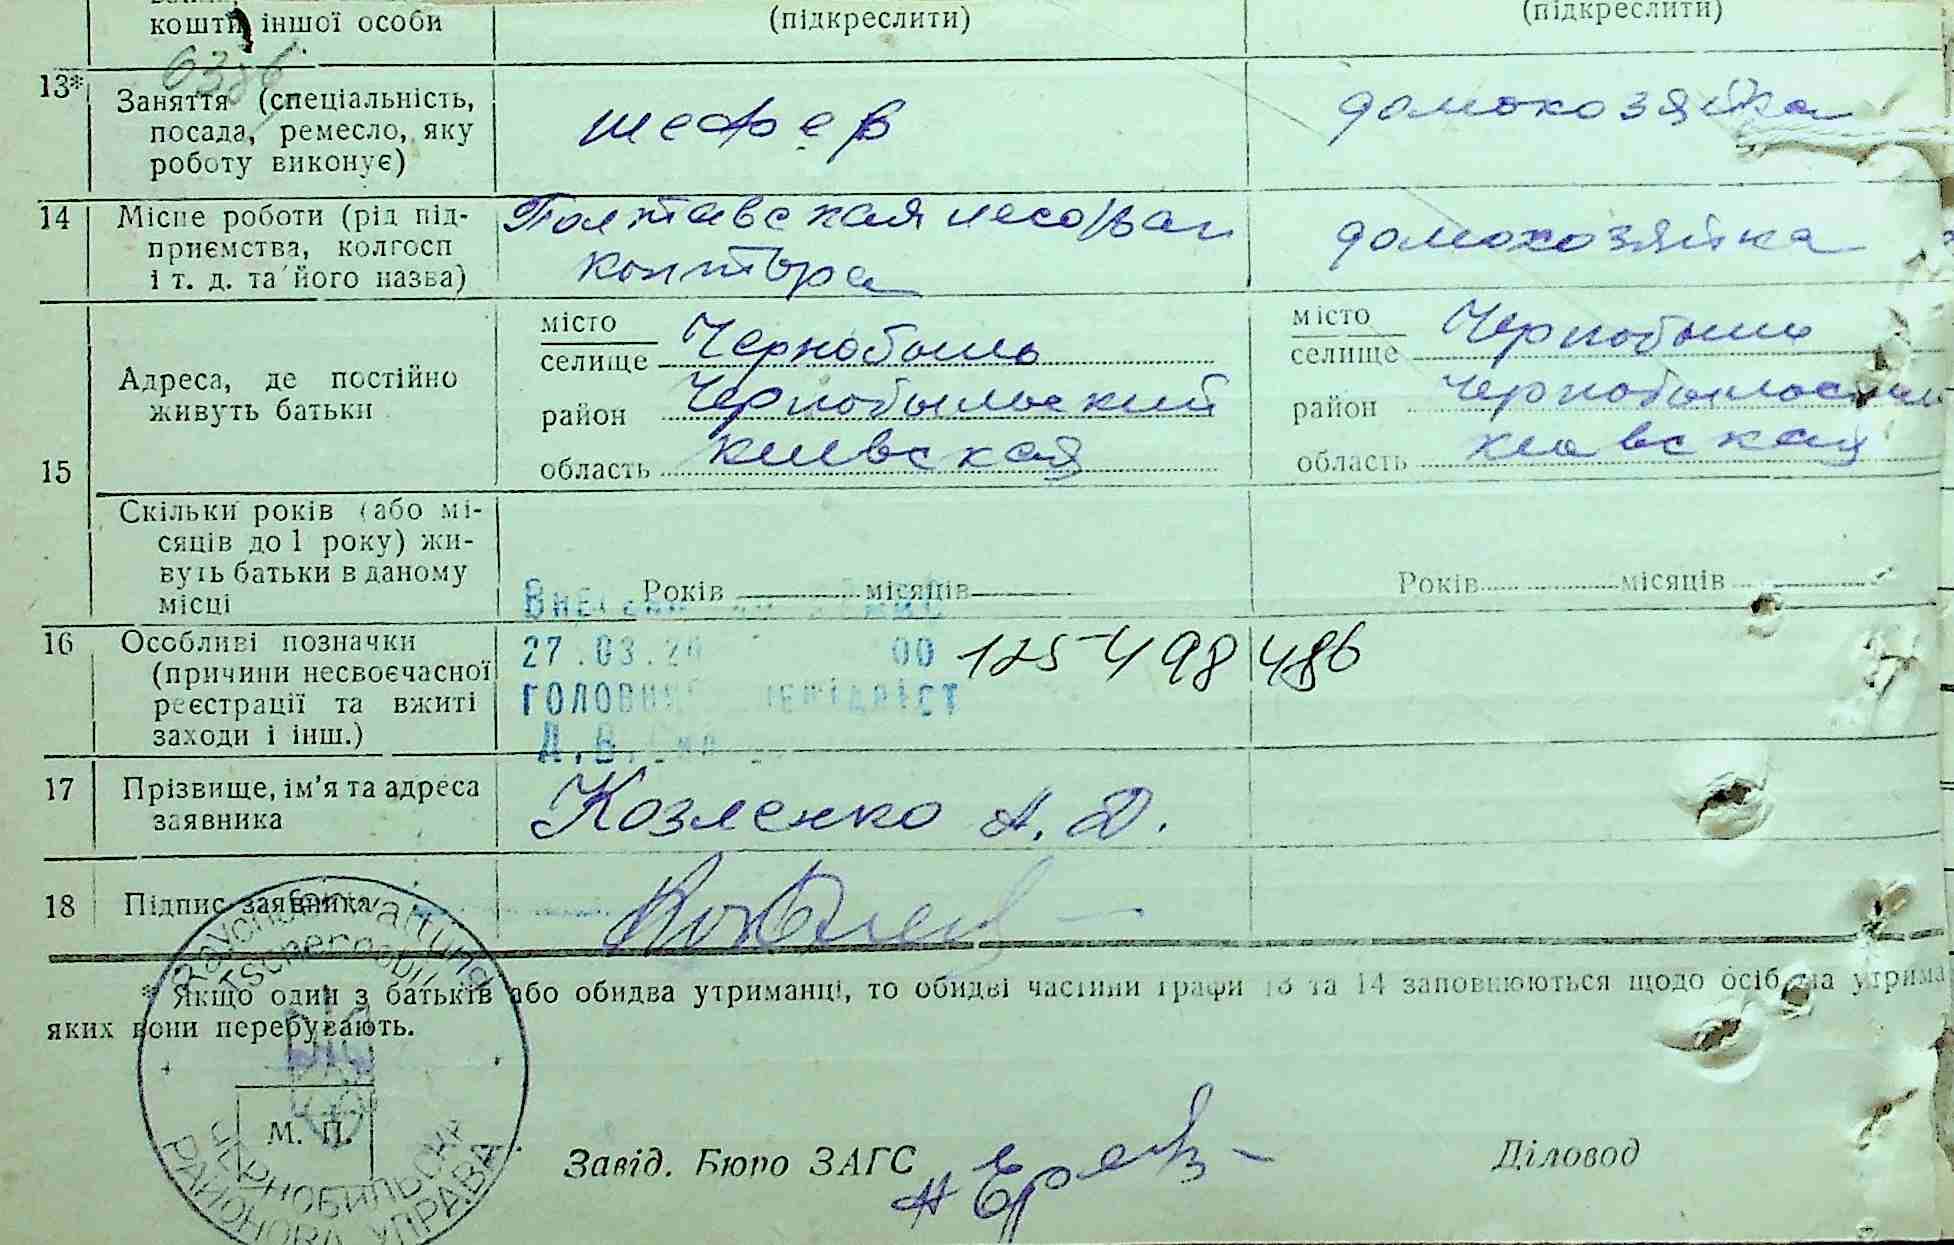 кошти іншої особи (підкреслити) (підкреслити)
13* Заняття (спеціальність, посада, ремесло, яку роботу виконує) шефер домохозяйка
14 Місце роботи (рід підприємства, колгосп і т. д. та його назва) Полтавская контора домохозяйка
15 Адреса, де постійно живуть батьки
місто селище Чернобыль
район Чернобыльский
область Киевская
місто селище Чернобыль
район Чернобыльский
область Киевская
Скільки років (або місяців до 1 року) живуть батьки в даному місці
Років місяців Років місяців
16 Особливі позначки (причини несвоєчасної реєстрації та вжиті заходи і інш.)
27.03.20 00 125498486
17 Прізвище, ім'я та адреса заявника Козленко А. Д.
18 Підпис заявника
* Якщо один з батьків або обидва утриманці, то обидві частини графи 13 та 14 заповнюються щодо осіб, на
яких вони перебувають.
Rayonverwaltung
Tschernobil
М. П.
Чорнобильська
РАЙОНОВА УПРАВА
Завід. Бюро ЗАГС
Діловод